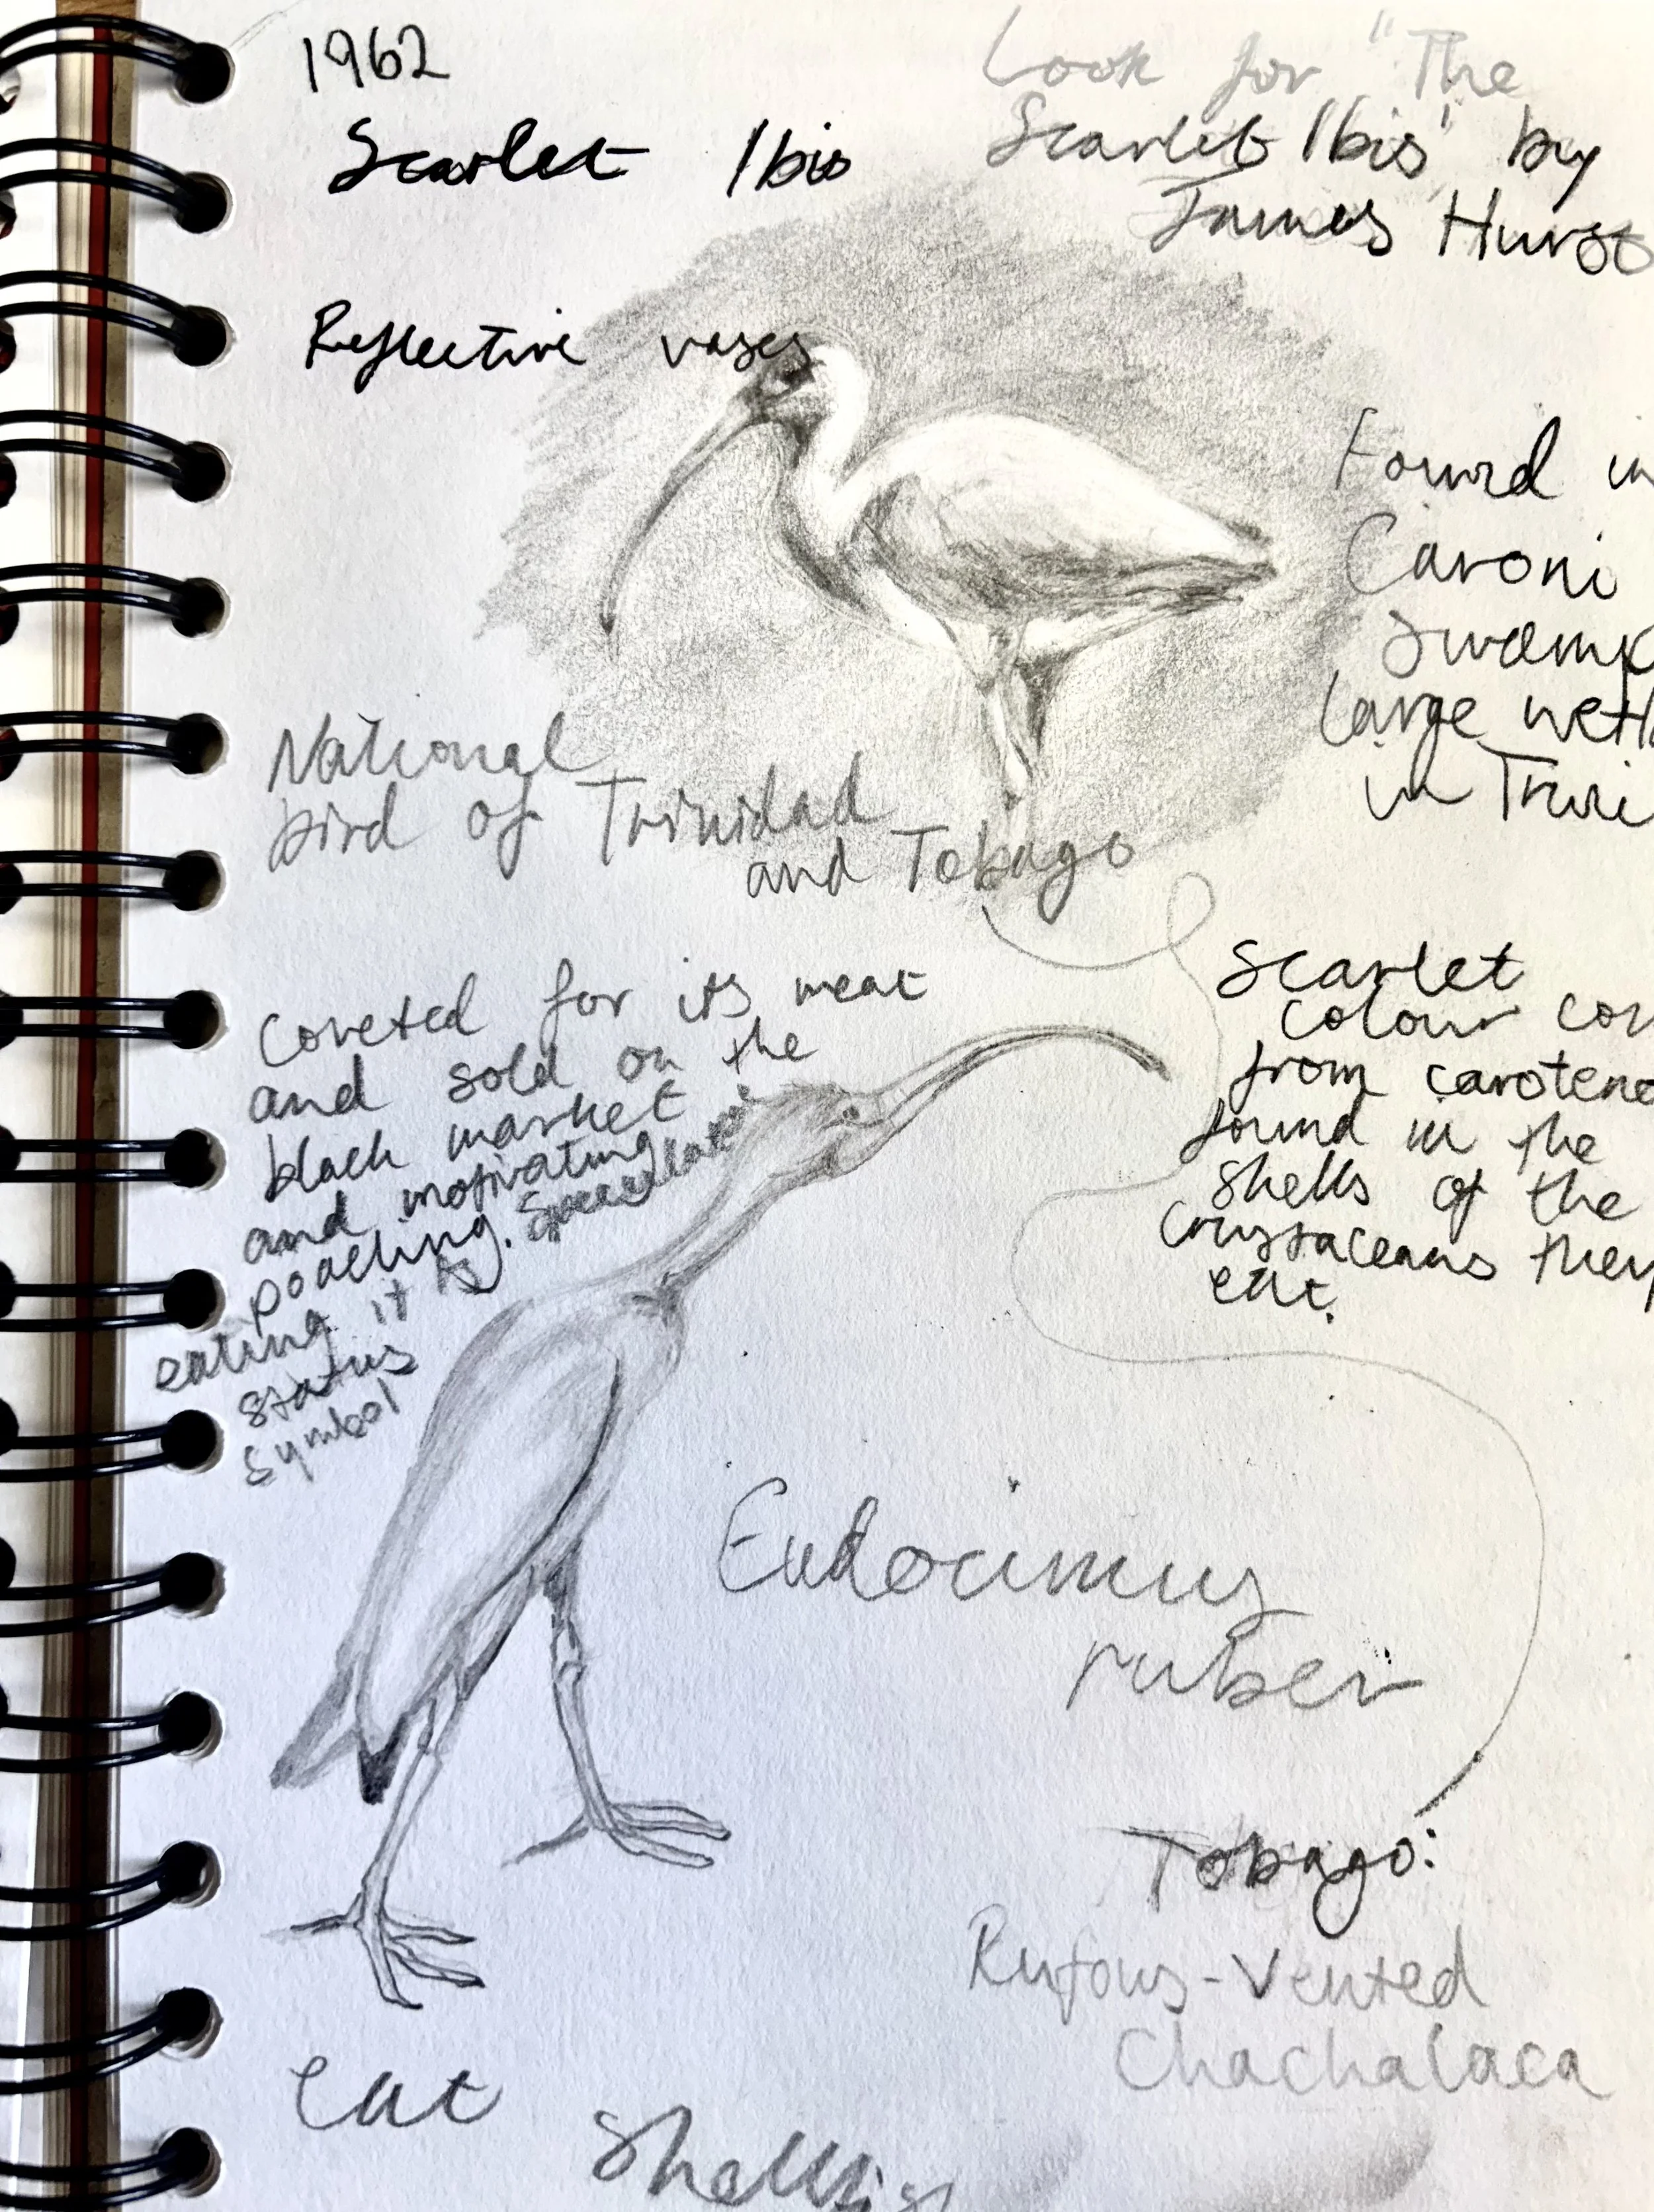 1962
Scarlet Ibis
Look for "The
Scarlet Ibis" by
James Hurst
Reflective vases
Found in
Caroni
Swamp
large wetla
in Trini
National
bird of Trinidad
and Tobago
Coveted for its meat
and sold on the
black market
and motivating
poaching. Speculation
eating it is
status
symbol
Scarlet
colour com
from carotene
found in the
shells of the
crustaceans they
eat.
Eudocimus
ruber
Tobago:
Rufous-Vented
Chachalaca
Eat
Shellfis